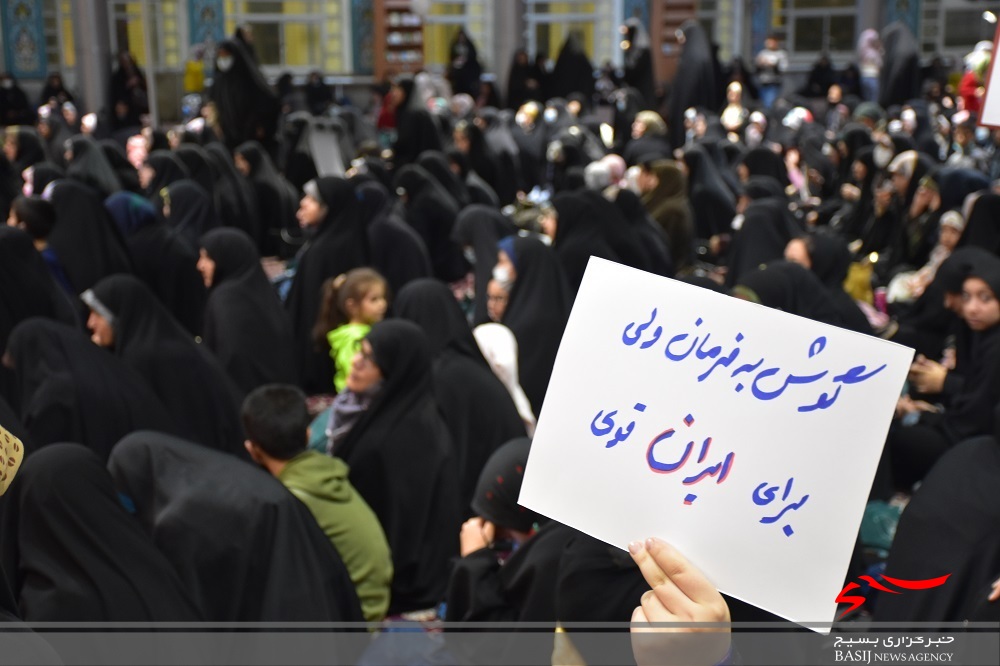 گوش به فرمان ولی
برای ایران قوی
بسیج
خبرگزاری بسیج
BASIJ NEWS AGENCY